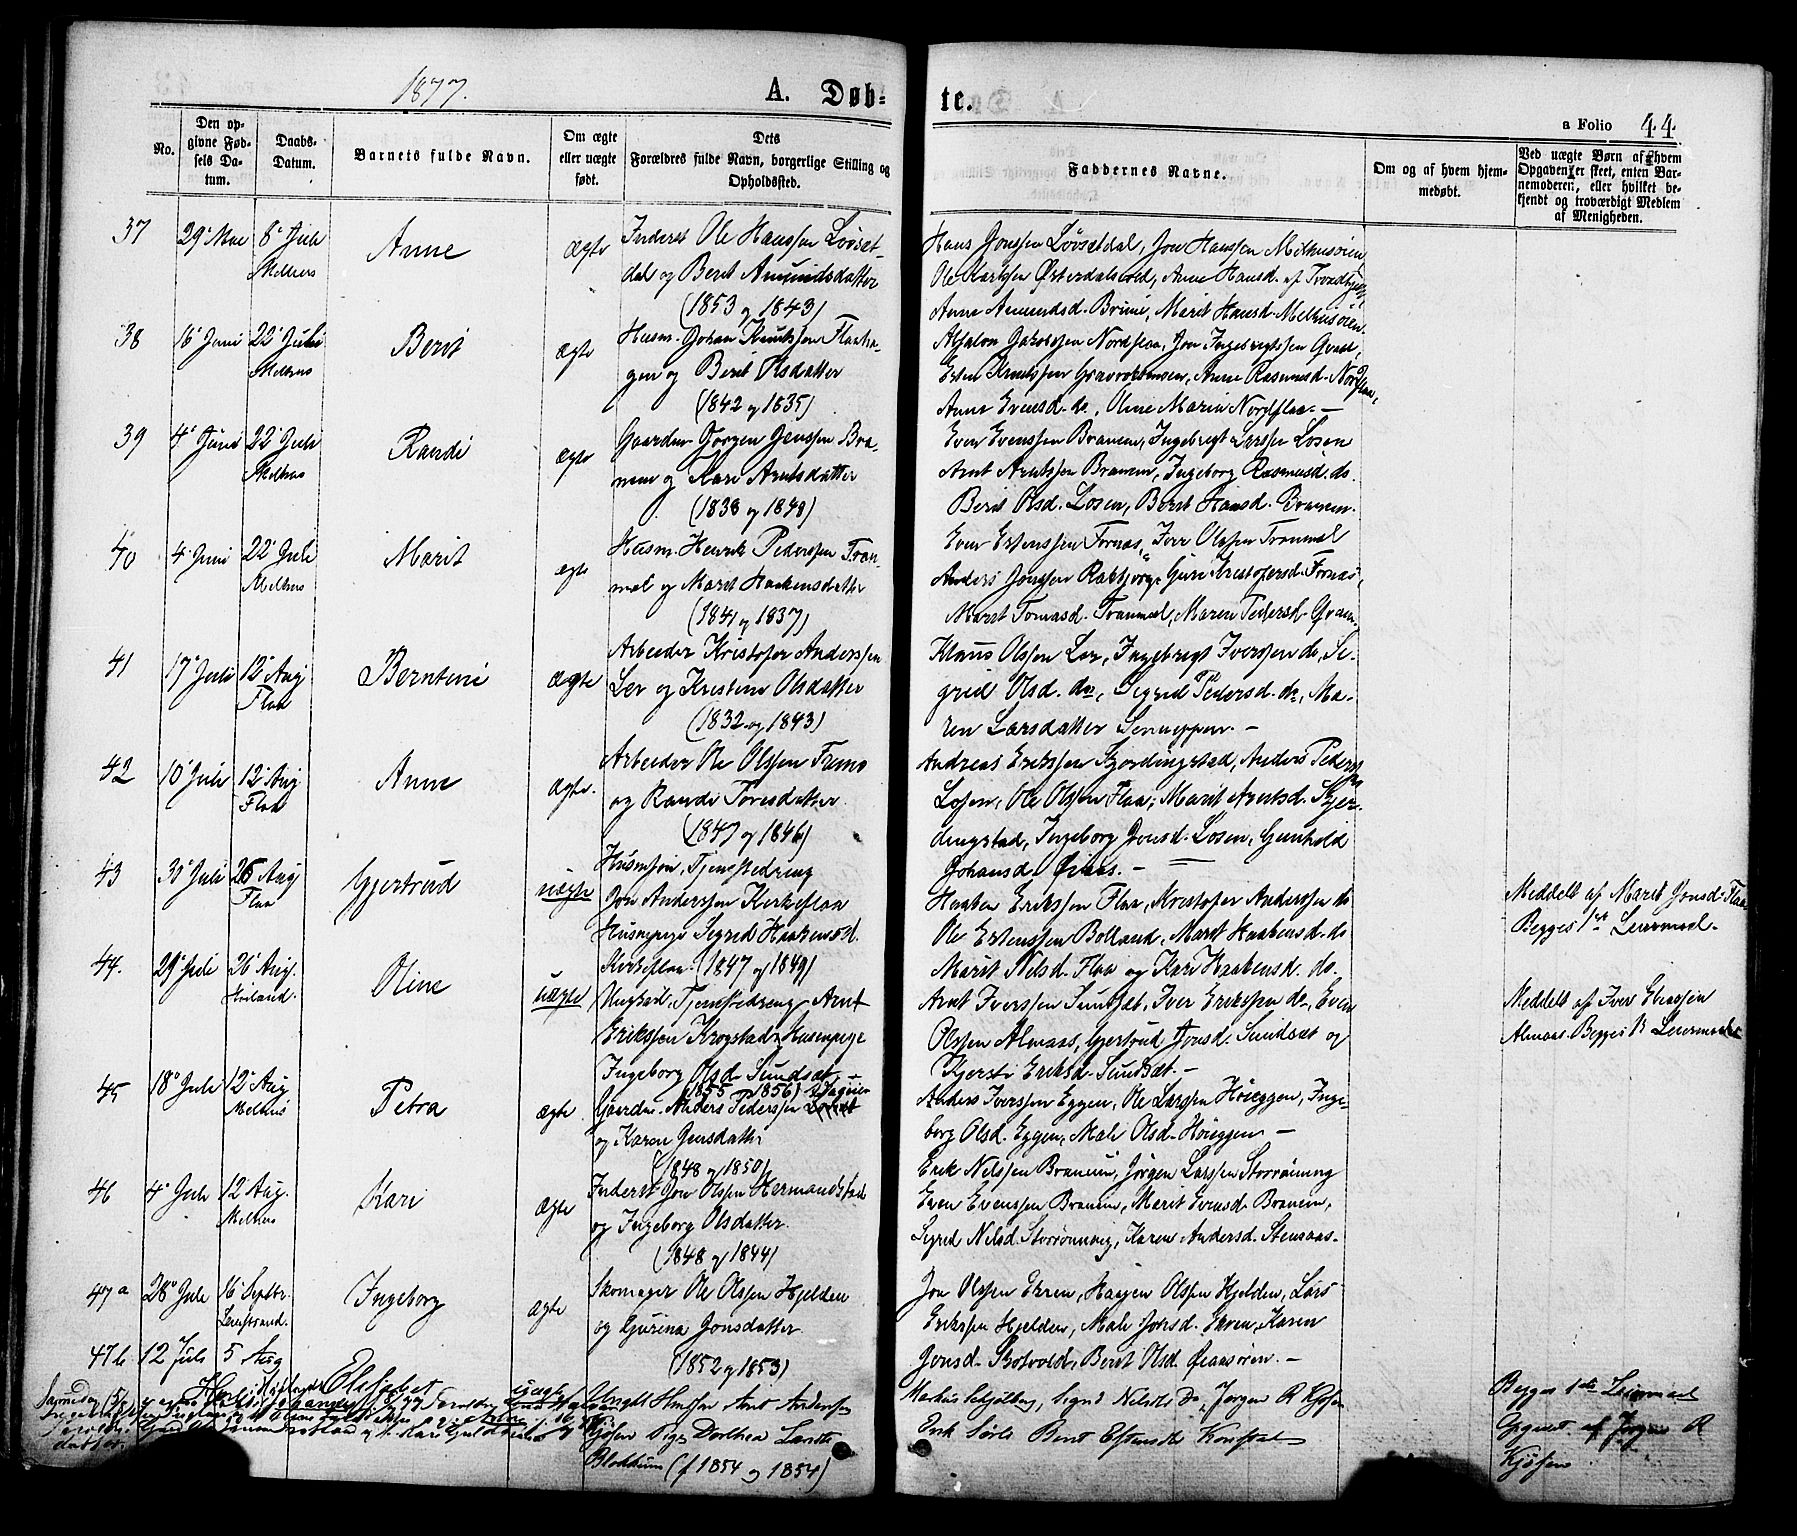 1877.
A. Døb-
te.
a Folio 44
No.
Den op-
givne Fød-
sels Da-
tum.
Daabs-
Datum.
Barnets fulde Navn.
Om ægte
eller uægte
født.
Dets
Forældres fulde Navn, borgerlige Stilling og
Opholdssted.
Faddernes Navne.
Om og af hvem hjem-
medøbt.
Ved uægte Børn af hvem
Opgaven er skeet, enten Bar-
nemoderen, eller hvilket be-
kjendt og troværdigt Medlem
af Menigheden.
37 29 Mai 8 Juli
Melhus
Anne
ægte
Inderst Ole Hanssen Løvset-
dal og Berit Amundsdatter
(1853 og 1843)
Hans Jonssen Løvsetdal, Jon Hanssen Melhusøien,
Ole Karlsen Østerdalen, Anne Hansd. af Trondhjem,
Anne Amundsd. Bruni, Marit Hansd. Melhusøien
38 16 Juni 22 Juli
Melhus
Berit
ægte
Husm. Johan Knutssen Flaaha-
gen og Berit Olsdatter
(1842 og 1835)
Absalon Jakobssen Nordflaa, Jon Ingebrigtssen Gvaal,
Esten Knutssen, Anne Rasmusd. Nordflaa,
Anne Evensd. do, Oline Marie Nordflaa. —
39 4 Juni 22 Juli
Melhus
Randi
ægte
Gaardm. Jørgen Jenssen Bra-
nem og Kari Arntsdatter
(1838 og 1848)
Even Evenssen Branem, Ingebrigt Larssen Losen
Arnt Arntssen Branem, Ingeborg Rasmusd. do.
Berit Olsd. Losen, Berit Hansd. Branem.
40 4 Juni 22 Juli
Melhus
Marit
ægte
Husm. Henrik Pederssen Tran-
mæl og Marit Haakensdatter
(1841 og 1837)
Even Estenssen Fornæs, Iver Olssen Tranmæl
Anders Jonssen Rakbjørg, Guri Kristofersd. Fornæs,
Marit Tomasd. Tranmæl, Maren Pedersd. Gvam
41 17 Juli 12 Aug
Flaa
Berntine
ægte
Arbeider Kristofer Anderssen
Ler og Kristine Olsdatter
(1832 og 1843)
Klaus Olssen Ler, Ingebrigt Iverssen do, Si-
grid Olsd. do, Sigrid Pedersd. do, Ma-
ren Larsdatter
42 10 Juli 12 Aug
Flaa
Anne
ægte.
Arbeider Ole Olssen Fremo
og Randi Toresdatter
(1847 og 1846)
Andreas Erikssen Gjerdingstad, Anders Pederssen
Losen, Ole Olssen Flaa, Marit Arntsd. Gjer-
dingstad, Ingeborg Jonsd. Losen, Gunhild
Johansd. Øiaas. —
43 30 Juli 26 Aug
Flaa
Gjertrud
uægte
Husmsøn, Tjenestedreng
Jon Anderssen Kirkeflaa
Husmpige Sigrid Haakensd.
Kirkeflaa. (1847 og 1849)
Haaken Erikssen Flaa, Kristofer Anderssen do
Ole Estenssen Bolland, Marit Haakensd. do
Marit Nilsd. Flaa og Kari Haakensd. do.
Meddelt af Marit Jonsd. Flaa
Begges 1ste Leiermaal.
44. 29 Juli 26 Aug.
Høland.
Oline
uægte
Ungkarl, Tjenestedreng Arnt
Erikssen Krogstad, Husmpige
Ingeborg Olsd. Sundsæt —
(1855 1856)
Arnt Iverssen Sundsæt, Iver Erikssen do, Even
Olssen Almaas, Gjertrud Jonsd. Sundsæt og
Kjersti Eriksd. Sundsæt. —
Meddelt af Iver
Almaas. Begges 1ste Leiermaal
45 18 Juli 12 Aug
Melhus
Petra
ægte
Gaardm. Anders Pederssen
og Karen Jensdatter
(1848 og 1850)
Anders Iverssen Eggen, Ole Larssen Høieggen, Inge-
borg Olsd. Eggen, Mali Olsd. Høieggen —
46 4 Juli 12 Aug.
Melhus
Kari
ægte
Inderst Jon Olssen Hermandstad
og Ingeborg Olsdatter.
(1848 og 1844)
Erik Nilssen Branem, Jørgen Larssen Storrønning
Even Evenssen Branem, Marit Evensd. Branem,
Sigrid Nilsd. Storrønning, Karen Andersd. Stensaas.
47a 28 Juli 16 Septbr
Leinstrand.
Ingeborg
ægte
Skomager Ole Olssen Hjelden
og Gurina Jonsdatter
(1852 og 1853)
Jon Olssen Ekren, Haagen Olssen Hjelden, Lars
Erikssen Hjelden, Mali Jonsd. Ekren, Karen
Jonsd. Skotvold, Berit Olsd. Øiansøren. —
47b 12 Juli 5 Aug
Elisabet
uægte
Ungkl. Arnt Anderssen
Kjøsen Pige Dorthea
(f 1854 og 1854)
Markus, Jørgen R Kjøsen
Erik, Berit Estensdt
Begges 1ste Leiermaal
Opgivet af Jørgen R
Kjøsen